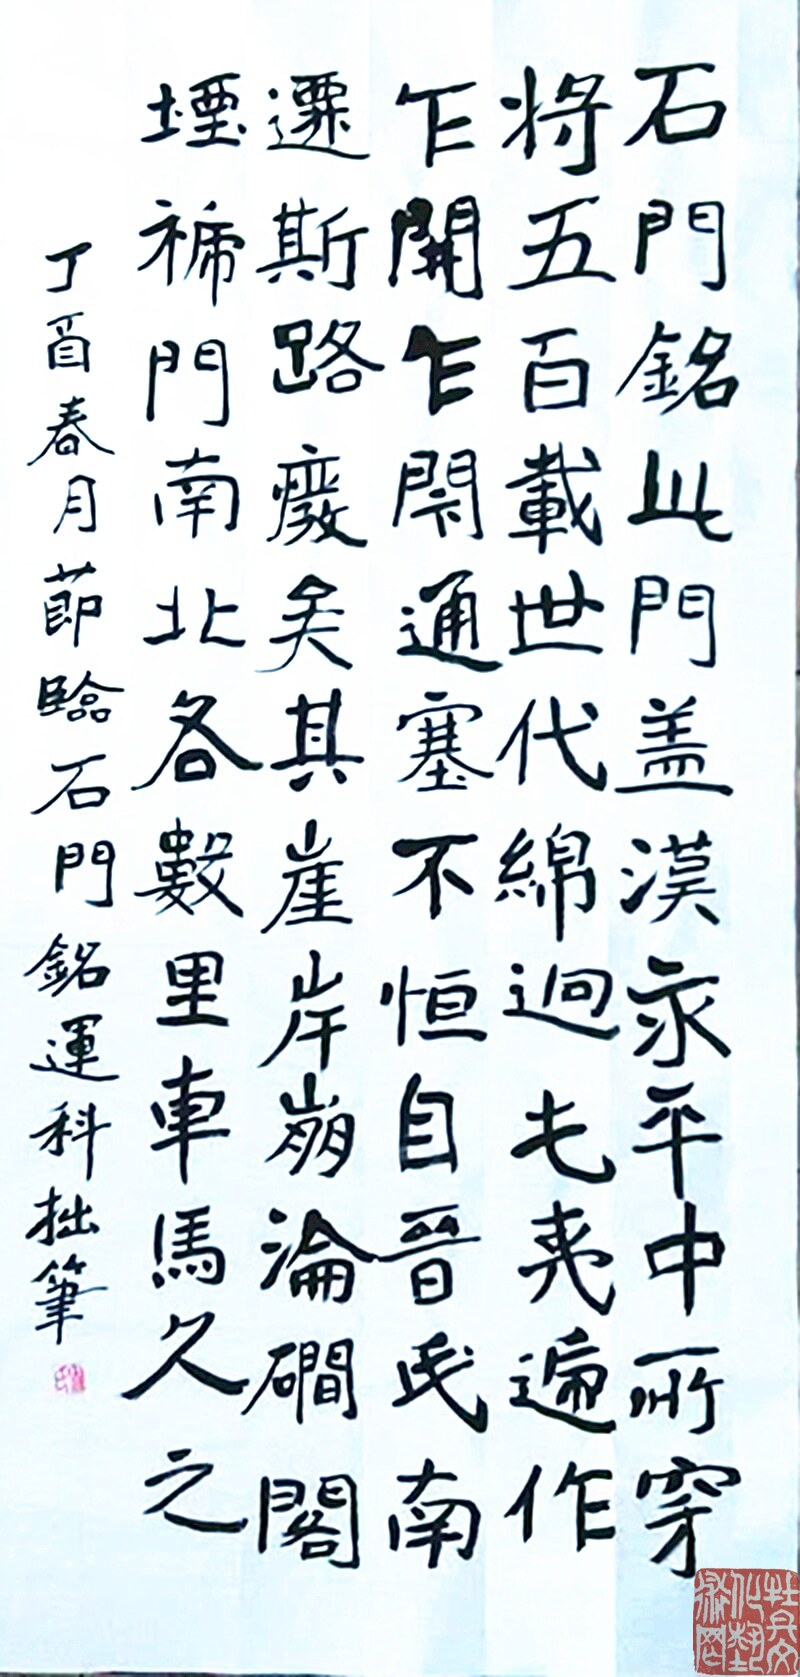 石門銘此門盖漢永平中所穿
將五百載世代綿迥屯夷遞作
乍開乍閇通塞不恒自晉氏南
遷斯路廢矣其崖岸崩淪礀閣
堙褫門南北各數里車馬久之
丁酉春月節臨石門銘運科拙筆